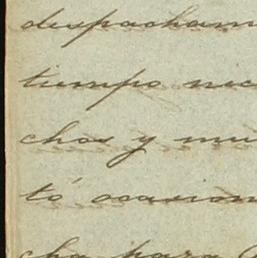 despacham
tiempo nec
chos y mu
tó ocasion
cha para